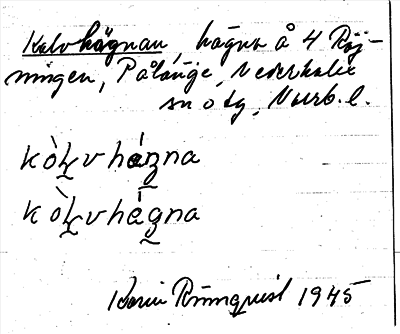 Kalvhägnan, hägn å 4 Röj-
ningen, Pålänge, Nederkalix
sn o tg, Norrb. l.
kòl̥vházna
kòl̥vhágna
Karin Rönnquist 1945